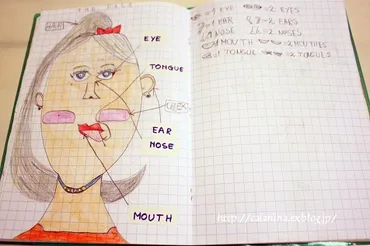 THE FACE
HAIR
EYE
TONGUE
CHEEK
EAR
NOSE
MOUTH
=1 EYE =2 EYES
=1 EAR =2 EARS
NOSE =2 NOSES
1 MOUTH =2 MOUTHES
=1 TONGUE =2 TONGUES
http://catanina.exblog.jp/